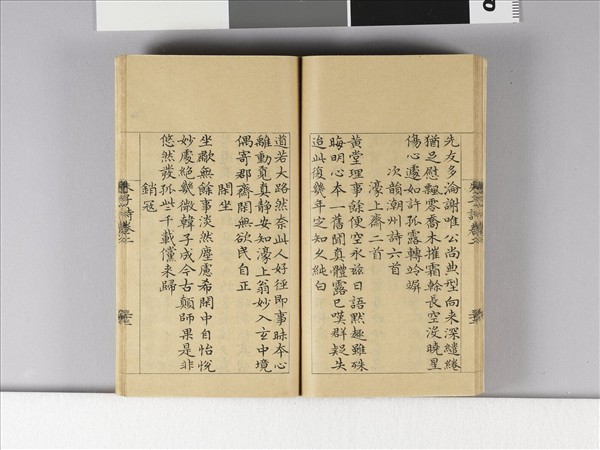 先友多淪謝唯公尚典型向来深繾綣
猶足慰飄零喬木摧霜榦長空沒曉星
傷心遽如許孤露轉竛竮
次韻潮州詩六首
濠上齋二首
黄堂理事餘便空永茲日語黙趣雖殊
晦明心本一舊聞真體露已嘆群疑失
造此復幾年定知幺純白
道若大路然奈此人好徑即事昧夲心
離動覓真静安知濠上翁妙入玄中境
偶寄郡齋閑無欲民自正
閑坐
坐歇無餘事淡然塵慮希閑中自怡悅
妙處絶幾微韓子成今古顛師果是非
悠然發孤㗲千載儻来歸
銷寇